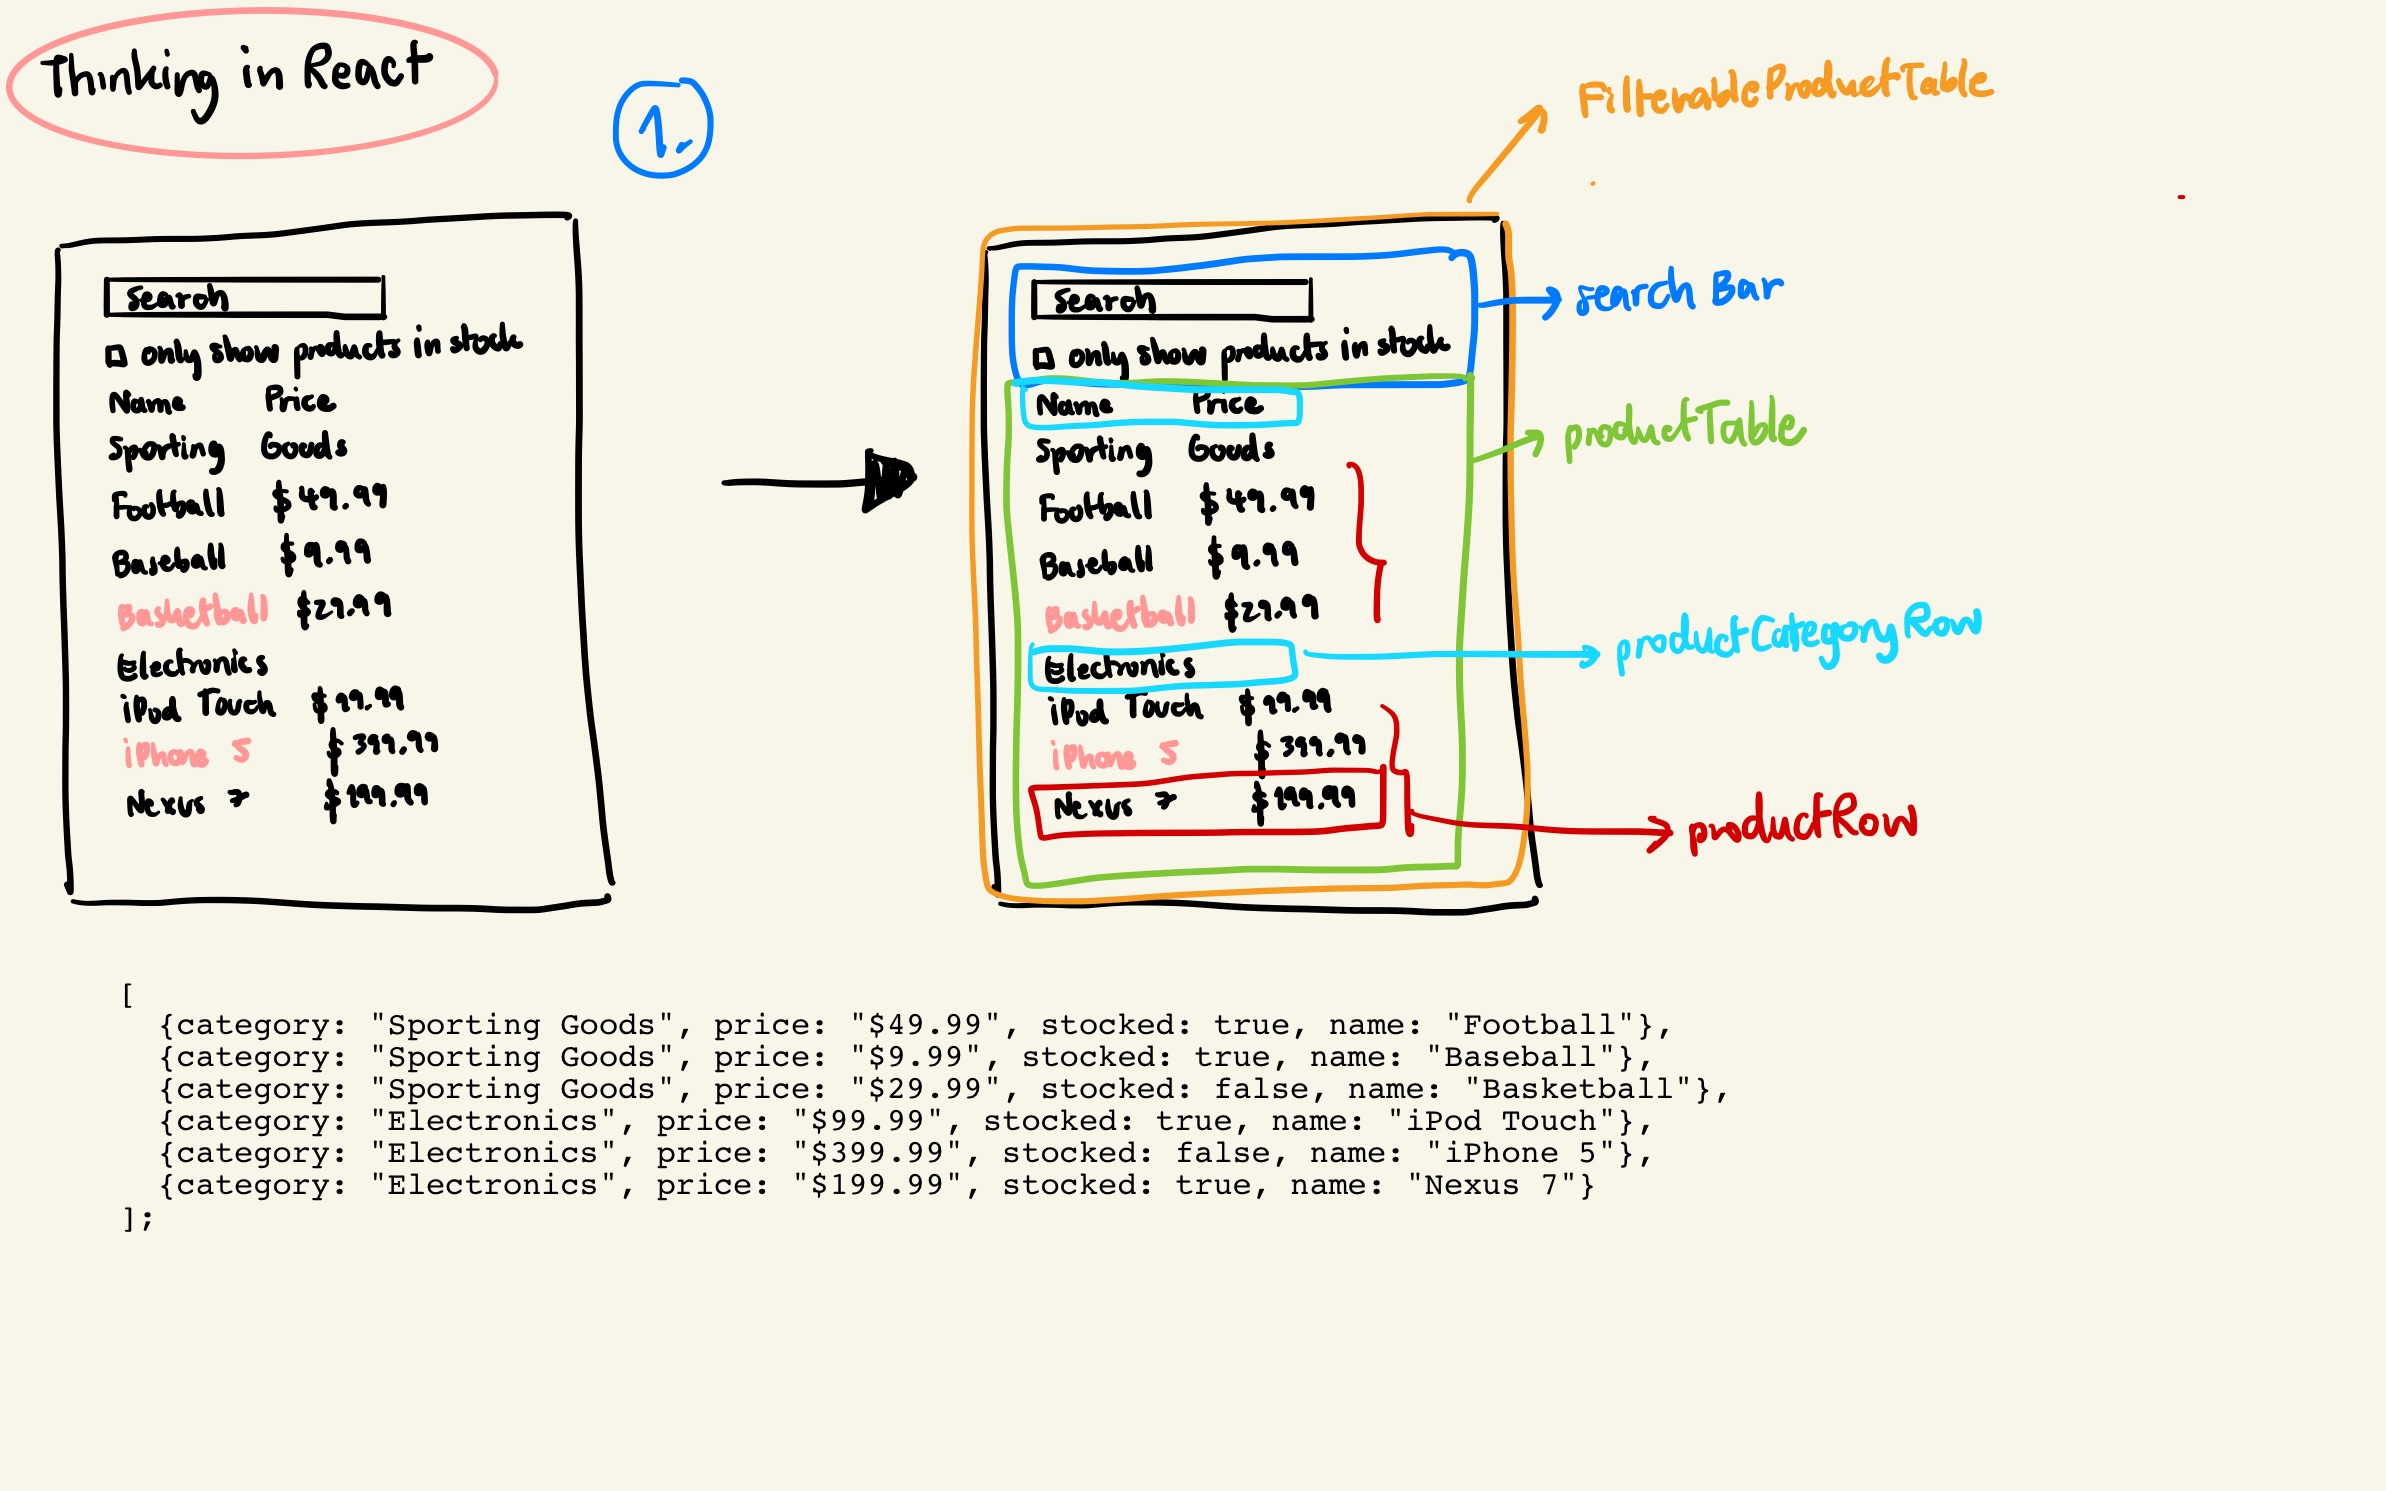 Thinking in React
1.
search
only show products in stock
Name Price
Sporting Goods
Football $49.99
Baseball $9.99
Basketball $29.99
Electronics
iPod Touch $99.99
iPhone 5 $399.99
Nexus 7 $199.99
FilterableProductTable
search
only show products in stock
search Bar
Name Price
productTable
Sporting Goods
Football $49.99
Baseball $9.99
Basketball $29.99
Electronics
productCategoryRow
iPod Touch $99.99
iPhone 5 $399.99
Nexus 7 $199.99
productRow
[
{category: "Sporting Goods", price: "$49.99", stocked: true, name: "Football"},
{category: "Sporting Goods", price: "$9.99", stocked: true, name: "Baseball"},
{category: "Sporting Goods", price: "$29.99", stocked: false, name: "Basketball"},
{category: "Electronics", price: "$99.99", stocked: true, name: "iPod Touch"},
{category: "Electronics", price: "$399.99", stocked: false, name: "iPhone 5"},
{category: "Electronics", price: "$199.99", stocked: true, name: "Nexus 7"}
];